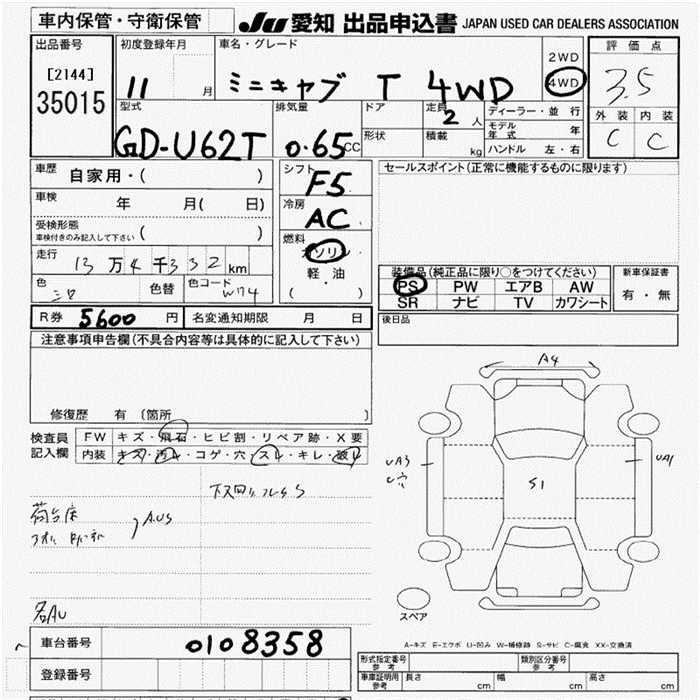 車内保管・守衛保管
JU 愛知 出品申込書 JAPAN USED CAR DEALERS ASSOCIATION
出品番号
[2144]
35015
初度登録年月
11 月
車名・グレード
ミニキャブ T 4WD
2WD
4WD
評価点
3.5
外装 内装
C C
型式
GD-U62T
排気量
0.65CC
ドア
形状
定員
2人
積載
kg
ディーラー・並行
モデル年式 年
ハンドル 左・右
車歴
自家用・( )
車検
年 月( 日)
受検形態
車検付きのみ記入して下さい ( )
走行
13万4千332km
色
シロ
色替
色コード
W74
シフト
F5
冷房
AC
燃料
ガソリン
軽・油
( )
セールスポイント(正常に機能するものに限ります)
装備品(純正品に限り○をつけてください)
PS PW エアB AW
SR ナビ TV カワシート
新車保証書
有・無
R券 5600 円
名変通知期限 月 日
後日品
注意事項申告欄(不具合内容等は具体的に記入して下さい)
修復歴 有 〔箇所 〕
検査員記入欄
FW キズ・飛石・ヒビ割・リペア跡・X要
内装 キズ・汚れ・コゲ・穴・スレ・キレ・破れ
荷台床
AUS
各AU
A4
UA3
U穴
UA1
S1
スペア
A-キズ E-エクボ U-凹み W-補修跡 S-サビ C-腐食 XX-交換済
車台番号 0108358
登録番号
形式指定番号参考
類別区分番号参考
車庫証明用参考
長さ cm 幅 cm 高さ cm